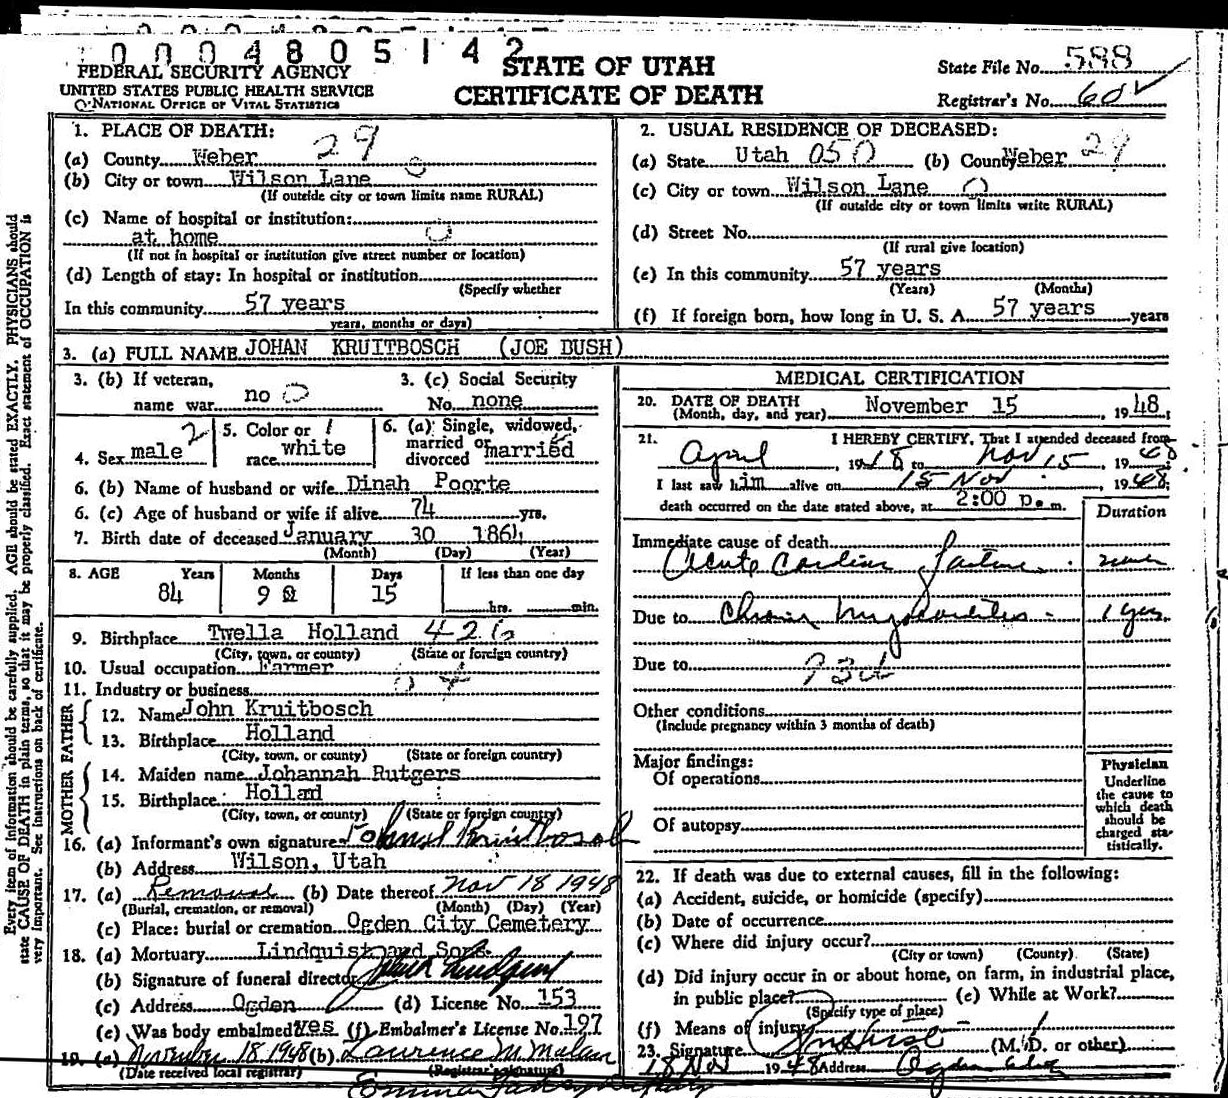 0004805142
FEDERAL SECURITY AGENCY
UNITED STATES PUBLIC HEALTH SERVICE
NATIONAL OFFICE OF VITAL STATISTICS
STATE OF UTAH
CERTIFICATE OF DEATH
State File No. 588
Registrar's No. 602
Every item of information should be carefully supplied. AGE should be stated EXACTLY. PHYSICIANS should
state CAUSE OF DEATH in plain terms, so that it may be properly classified. Exact statement of OCCUPATION is
very important. See instructions on back of certificate.
1. PLACE OF DEATH:
(a) County Weber 29
(b) City or town Wilson Lane
(If outside city or town limits name RURAL)
(c) Name of hospital or institution:
at home
(If not in hospital or institution give street number or location)
(d) Length of stay: In hospital or institution
(Specify whether
In this community 57 years
years, months or days)
2. USUAL RESIDENCE OF DECEASED:
(a) State Utah 050 (b) County Weber 29
(c) City or town Wilson Lane 0
(If outside city or town limits write RURAL)
(d) Street No.
(If rural give location)
(e) In this community 57 years
(Years) (Months)
(f) If foreign born, how long in U. S. A. 57 years years
3. (a) FULL NAME JOHAN KRUITBOSCH (JOE BUSH)
3. (b) If veteran, name war no 0
3. (c) Social Security No. none
4. Sex male 2
5. Color or race white 1
6. (a) Single, widowed, married or divorced married
6. (b) Name of husband or wife Dinah Poorte
6. (c) Age of husband or wife if alive 74 yrs.
7. Birth date of deceased January 30 1864
(Month) (Day) (Year)
8. AGE Years Months Days If less than one day
84 9 15 hrs. min.
9. Birthplace Twella Holland 426
(City, town, or county) (State or foreign country)
10. Usual occupation Farmer
11. Industry or business
FATHER
12. Name John Kruitbosch
13. Birthplace Holland
(City, town, or county) (State or foreign country)
MOTHER
14. Maiden name Johannah Rutgers
15. Birthplace Hollad
(City, town, or county) (State or foreign country)
16. (a) Informant's own signature Kruitbosch
(b) Address Wilson, Utah
17. (a) Removal (b) Date thereof Nov 18 1948
(Burial, cremation, or removal) (Month) (Day) (Year)
(c) Place: burial or cremation Ogden City Cemetery
18. (a) Mortuary Lindquist and Sons
(b) Signature of funeral director
(c) Address Ogden (d) License No. 153
(e) Was body embalmed? yes (f) Embalmer's License No. 197
19. (a) November 18, 1948 (b) Laurence M. Malan
(Date received local registrar) (Registrar's signature)
MEDICAL CERTIFICATION
20. DATE OF DEATH
(Month, day, and year) November 15, 1948;
21. I HEREBY CERTIFY, That I attended deceased from
April, 1948 to Nov 15, 1948
I last saw him alive on 15 Nov, 1948;
death occurred on the date stated above, at 2:00 p.m.
Duration
Immediate cause of death
Acute Cardiac Failure
Due to Chronic Myocarditis 1 yr
Due to 93d
Other conditions
(Include pregnancy within 3 months of death)
Major findings:
Of operations
Of autopsy
Physician
Underline
the cause to
which death
should be
charged sta-
tistically.
22. If death was due to external causes, fill in the following:
(a) Accident, suicide, or homicide (specify)
(b) Date of occurrence
(c) Where did injury occur?
(City or town) (County) (State)
(d) Did injury occur in or about home, on farm, in industrial place,
in public place? (e) While at Work?
(Specify type of place)
(f) Means of injury
23. Signature (M. D. or other)
18 Nov 1948 Address Ogden Utah